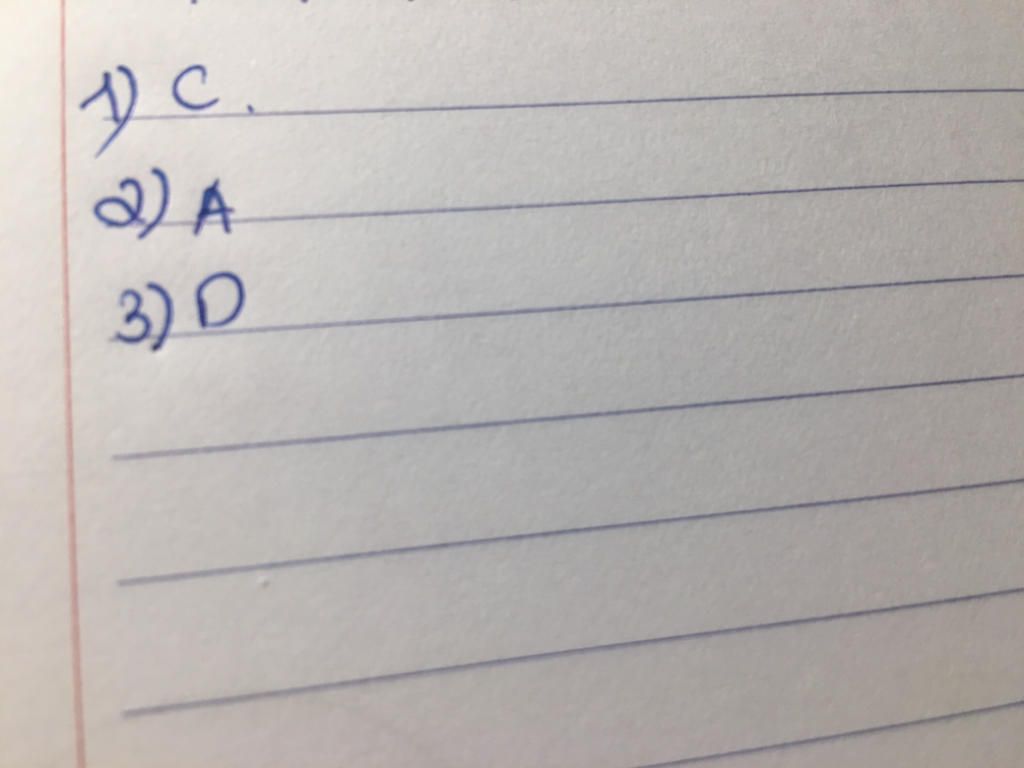 1) C.
2) A
3) D